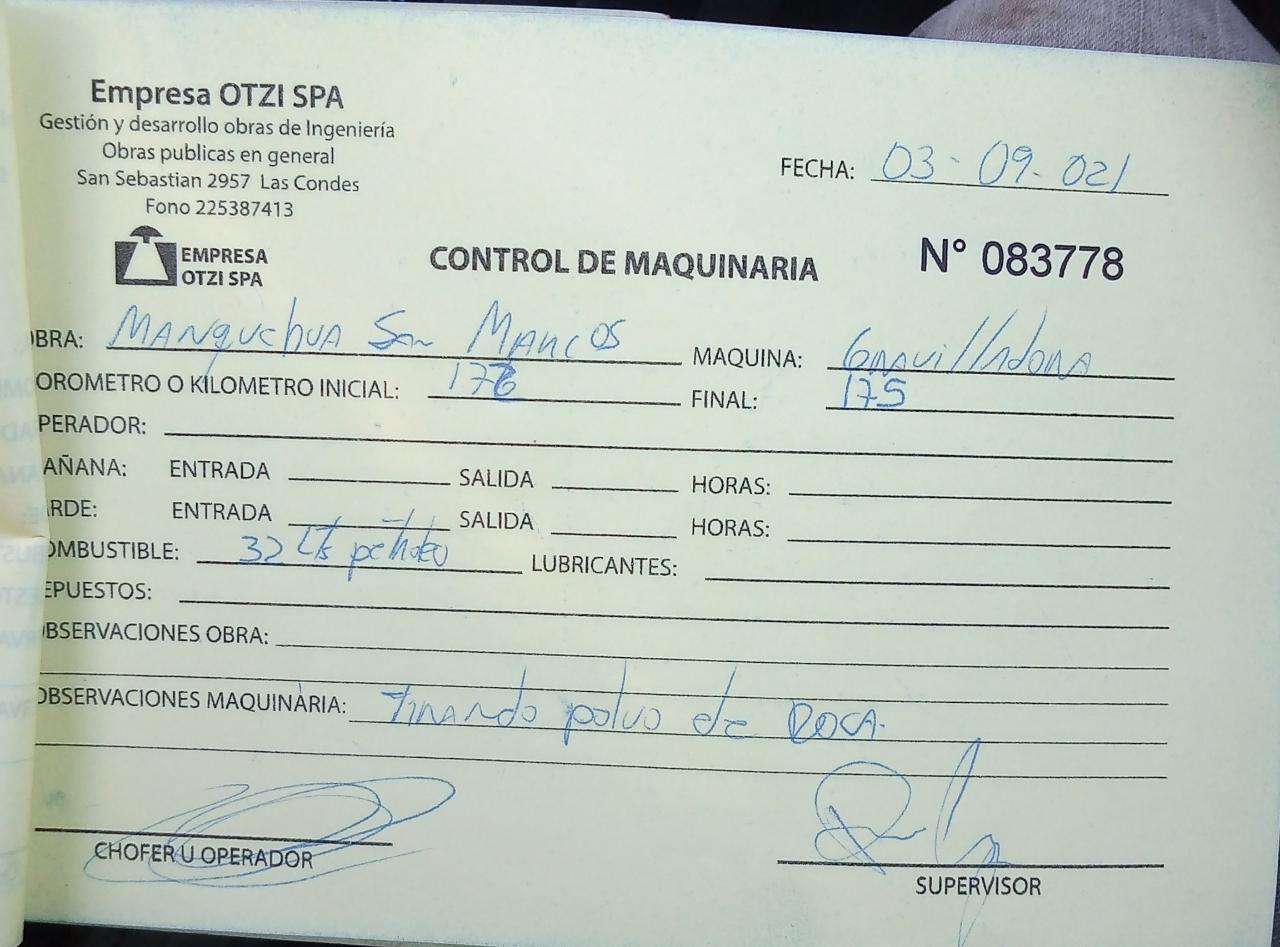 Empresa OTZI SPA
Gestión y desarrollo obras de Ingeniería
Obras publicas en general
San Sebastian 2957 Las Condes
Fono 225387413
FECHA: 03-09-021
EMPRESA
OTZI SPA
CONTROL DE MAQUINARIA
N° 083778
OBRA: Manquehua San Marcos MAQUINA: Gravilladora
OROMETRO O KILOMETRO INICIAL: FINAL: 175
PERADOR:
AÑANA: ENTRADA SALIDA HORAS:
ARDE: ENTRADA SALIDA HORAS:
OMBUSTIBLE: 32 Lts petroleo LUBRICANTES:
EPUESTOS:
OBSERVACIONES OBRA:
OBSERVACIONES MAQUINARIA: Tirando polvo de ROCA.
CHOFER U OPERADOR
SUPERVISOR